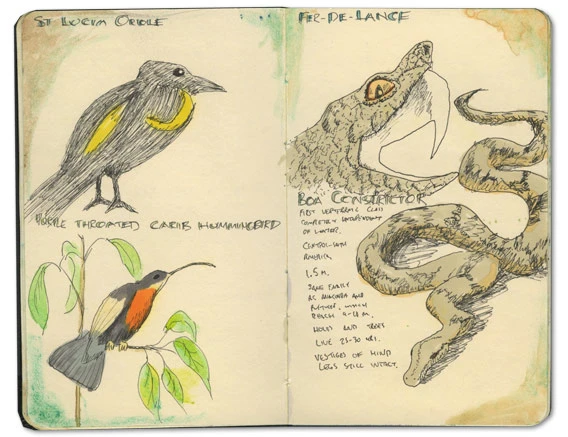 ST LUCIA ORIOLE
PURPLE THROATED CARIB HUMMINGBIRD
FER-DE-LANCE
BOA CONSTRICTOR
FIRST VERTEBRATE CLASS
COMPLETELY INDEPENDENT
OF WATER.
CENTRAL-SOUTH
AMERICA.
1.5 M.
SAME FAMILY
AS ANACONDA AND
PYTHON, WHICH
REACH 9-10 M.
HOLES AND TREES.
LIVE 25-30 YRS.
VESTIGES OF HIND
LEGS STILL INTACT.